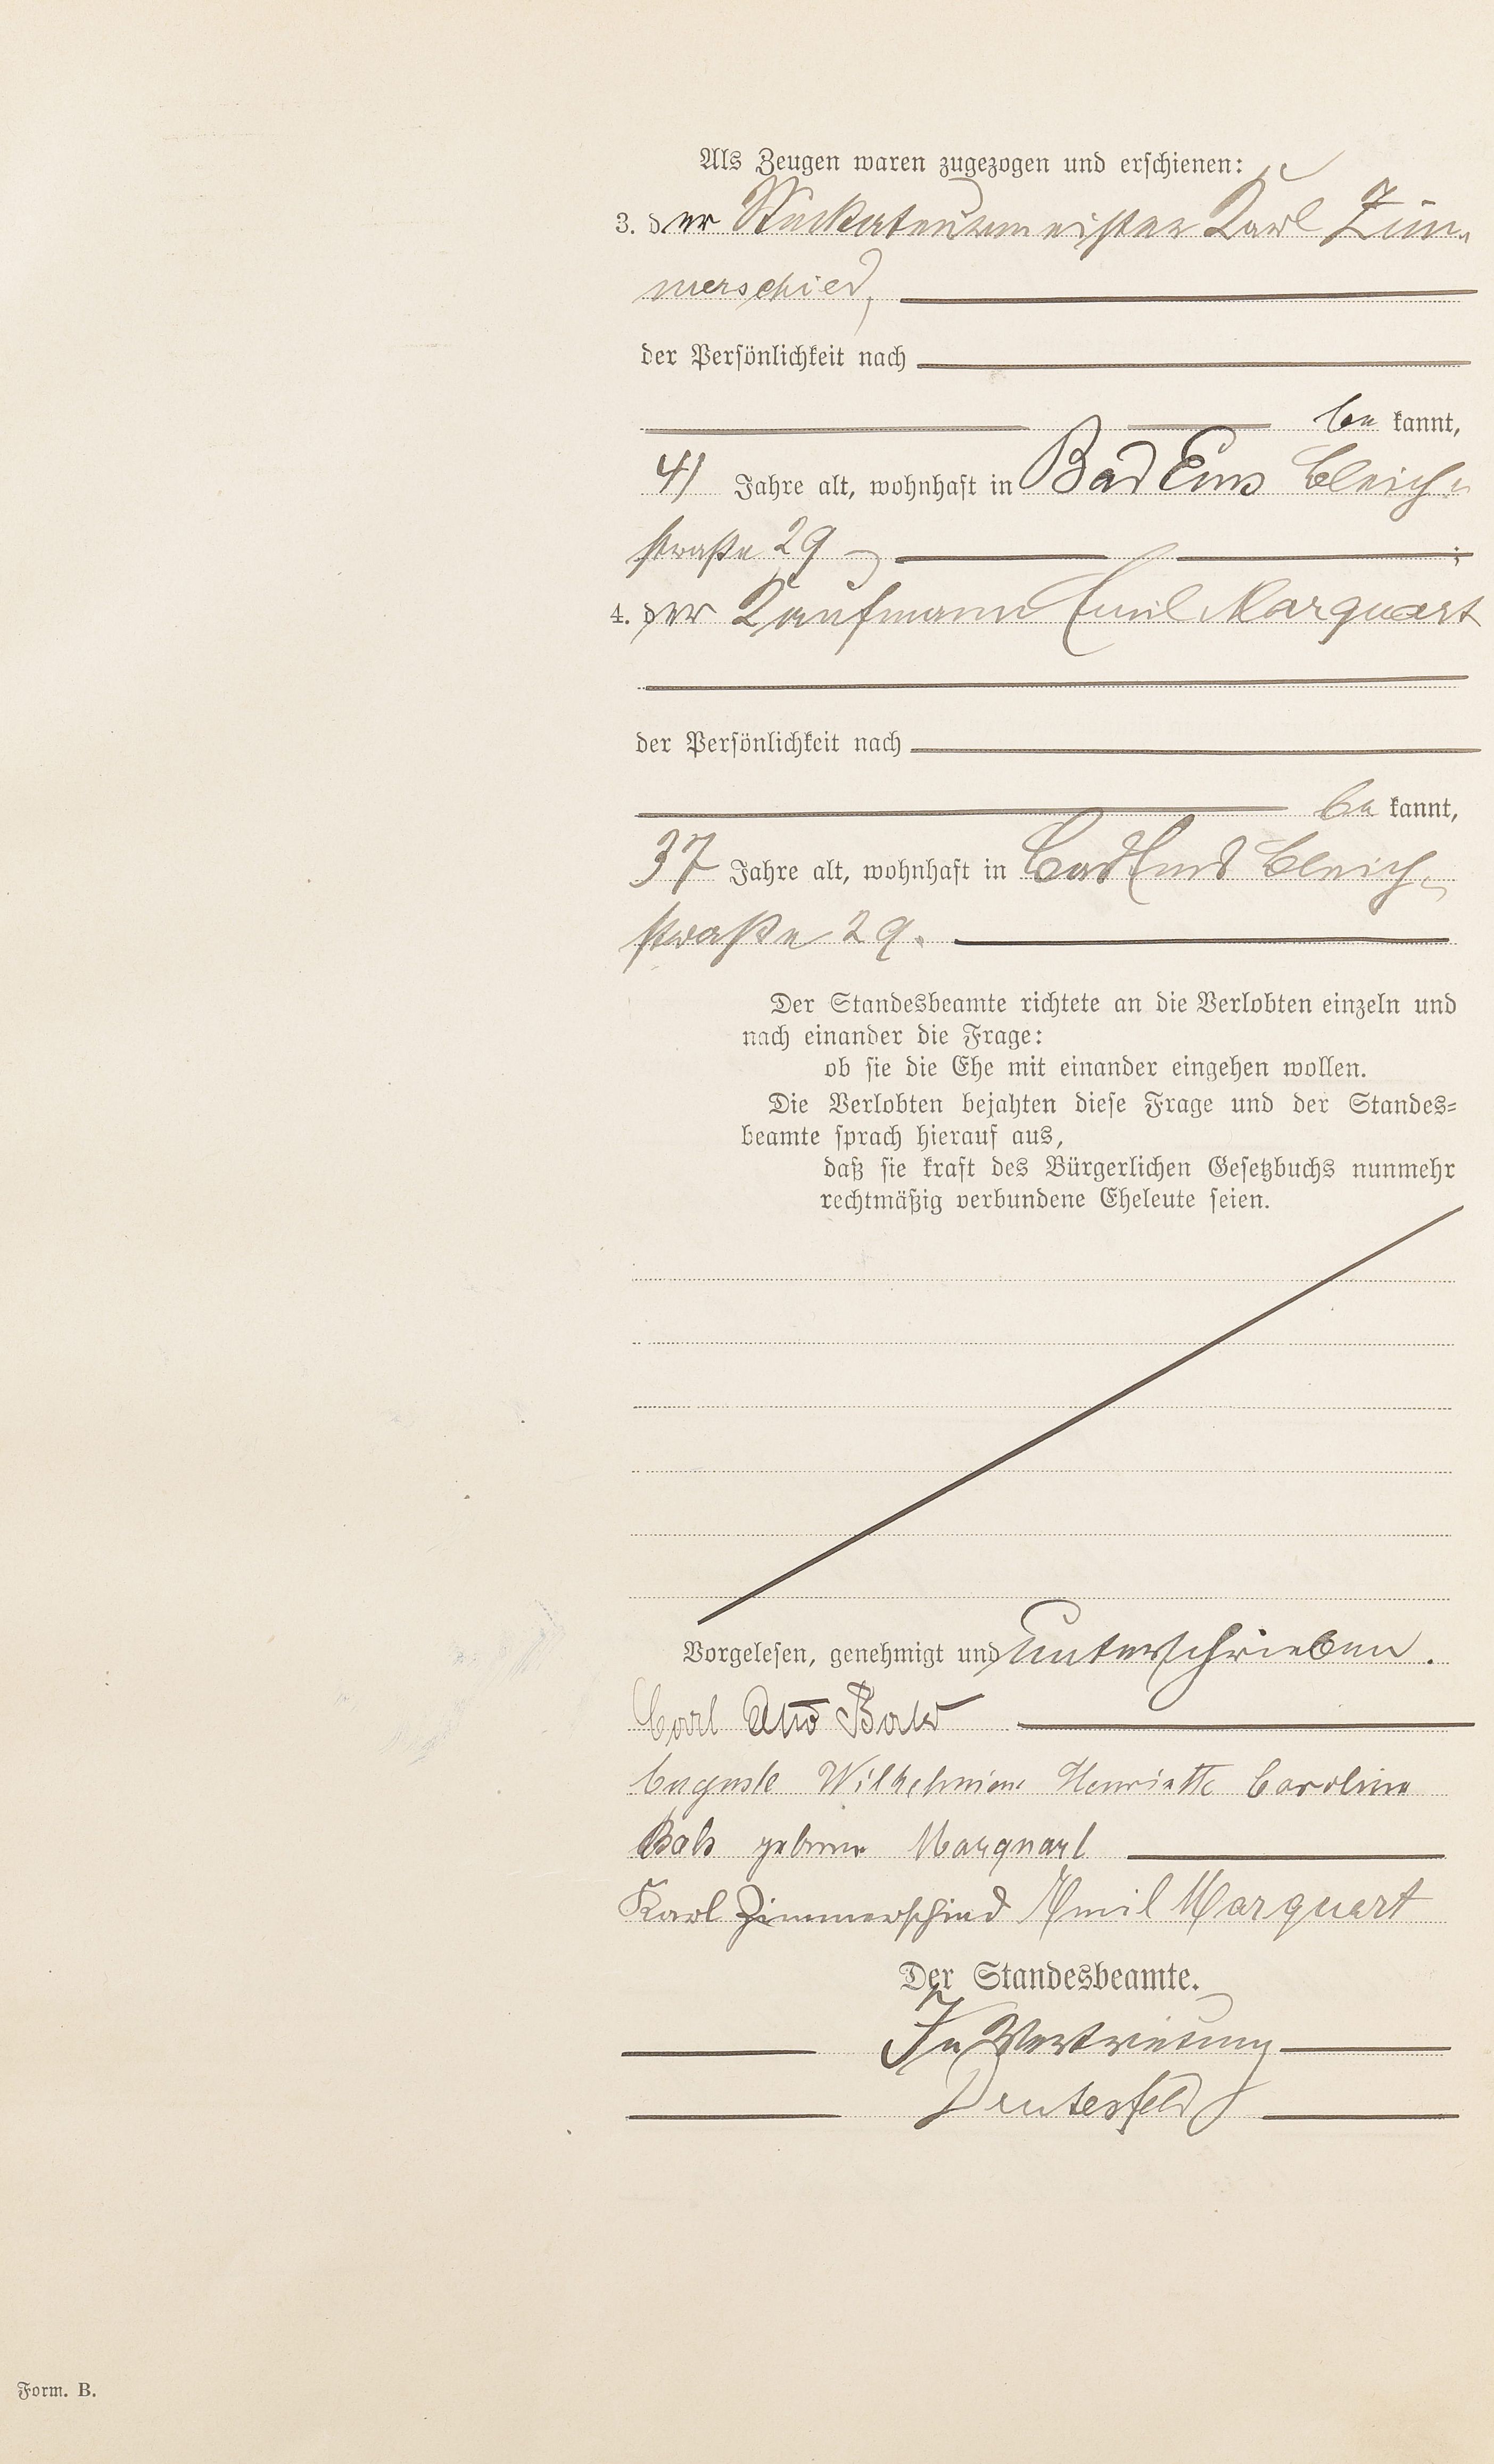 Als Zeugen waren zugezogen und erschienen:
3. der Stuckateurmeister Karl Zim-
merschied,
der Persönlichkeit nach
be kannt,
41 Jahre alt, wohnhaft in Bad Ems Bleich-
straße 29
;
4. der Kaufmann Emil Marquart
der Persönlichkeit nach
be kannt,
37 Jahre alt, wohnhaft in Bad Ems Bleich-
straße 29.
Der Standesbeamte richtete an die Verlobten einzeln und
nach einander die Frage:
ob sie die Ehe mit einander eingehen wollen.
Die Verlobten bejahten diese Frage und der Standes-
beamte sprach hierauf aus,
daß sie kraft des Bürgerlichen Gesetzbuchs nunmehr
rechtmäßig verbundene Eheleute seien.
Vorgelesen, genehmigt und unterschrieben.
Carl Otto
Auguste Wilhelmine Henriette Caroline
geborene Marquart
Karl Zimmerschied Emil Marquart
Der Standesbeamte.
In Vertretung
Form. B.